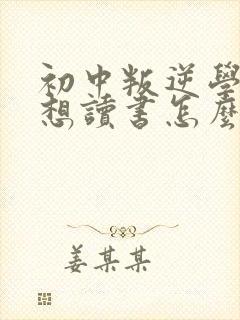 初中叛逆學
想讀書怎麼
姜某某